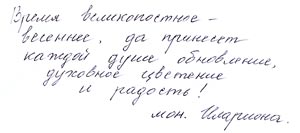 Время великопостное –
весеннее, да принесет
каждой душе обновление,
духовное цветение
и радость!
мон. Илариона.